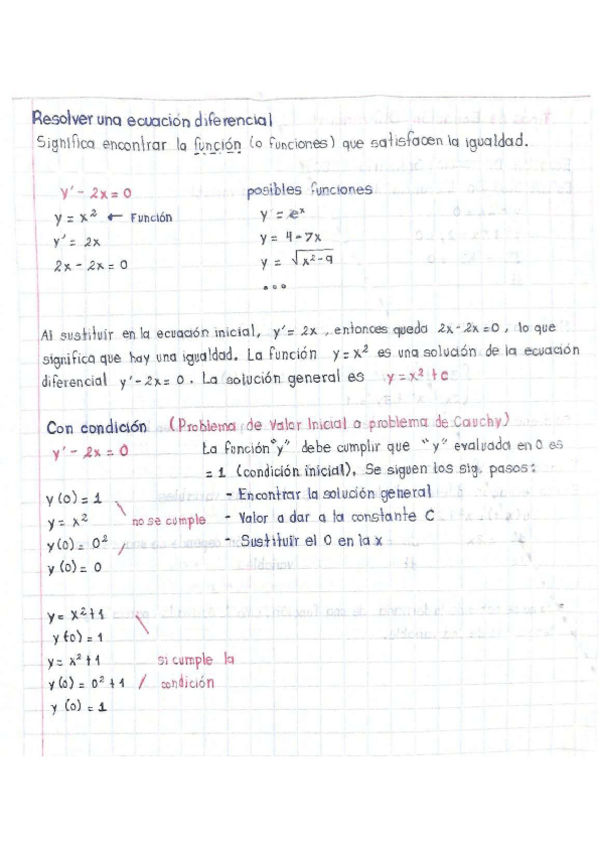 Resolver una ecuación diferencial
Significa encontrar la función (o funciones) que satisfacen la igualdad.
y' - 2x = 0
y = x² ← Función
y' = 2x
2x - 2x = 0
posibles funciones
y = eˣ
y = 4 - 7x
y = √x²-9
...
Al sustituir en la ecuación inicial, y' = 2x, entonces queda 2x - 2x = 0, lo que
significa que hay una igualdad. La función y = x² es una solución de la ecuación
diferencial y' - 2x = 0. La solución general es y = x² + c
Con condición (Problema de Valor Inicial o problema de Cauchy)
y' - 2x = 0
La función "y" debe cumplir que "y" evaluada en 0 es
= 1 (condición inicial). Se siguen los sig. pasos:
- Encontrar la solución general
- Valor a dar a la constante C
- Sustituir el 0 en la x
y(0) = 1
y = x²
y(0) = 0²
y(0) = 0
no se cumple
y = x²+1
y(0) = 1
y = x²+1
y(0) = 0²+1
y(0) = 1
si cumple la
condición